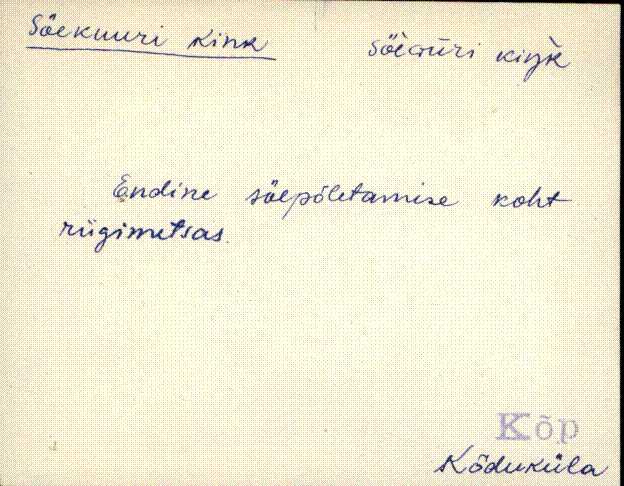 Sõekuuri kink sõèɢūri kiŋ̀k
Endine sõepõletamise koht
riigimetsas.
Kõp
Kõduküla